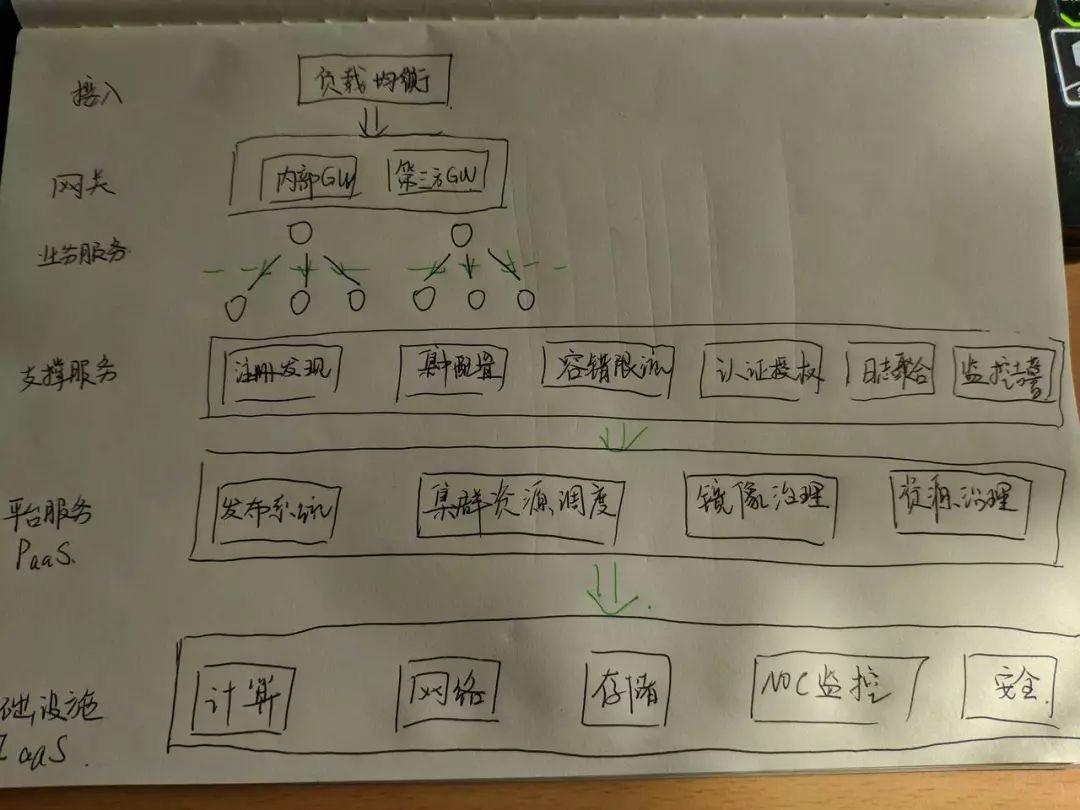 接入
负载均衡
网关
内部GW
第三方GW
业务服务
支撑服务
注册发现
集中配置
容错限流
认证授权
日志聚合
监控告警
平台服务
PaaS.
发布系统
集群资源调度
镜像治理
资源治理
础设施
IaaS.
计算
网络
存储
NOC监控
安全